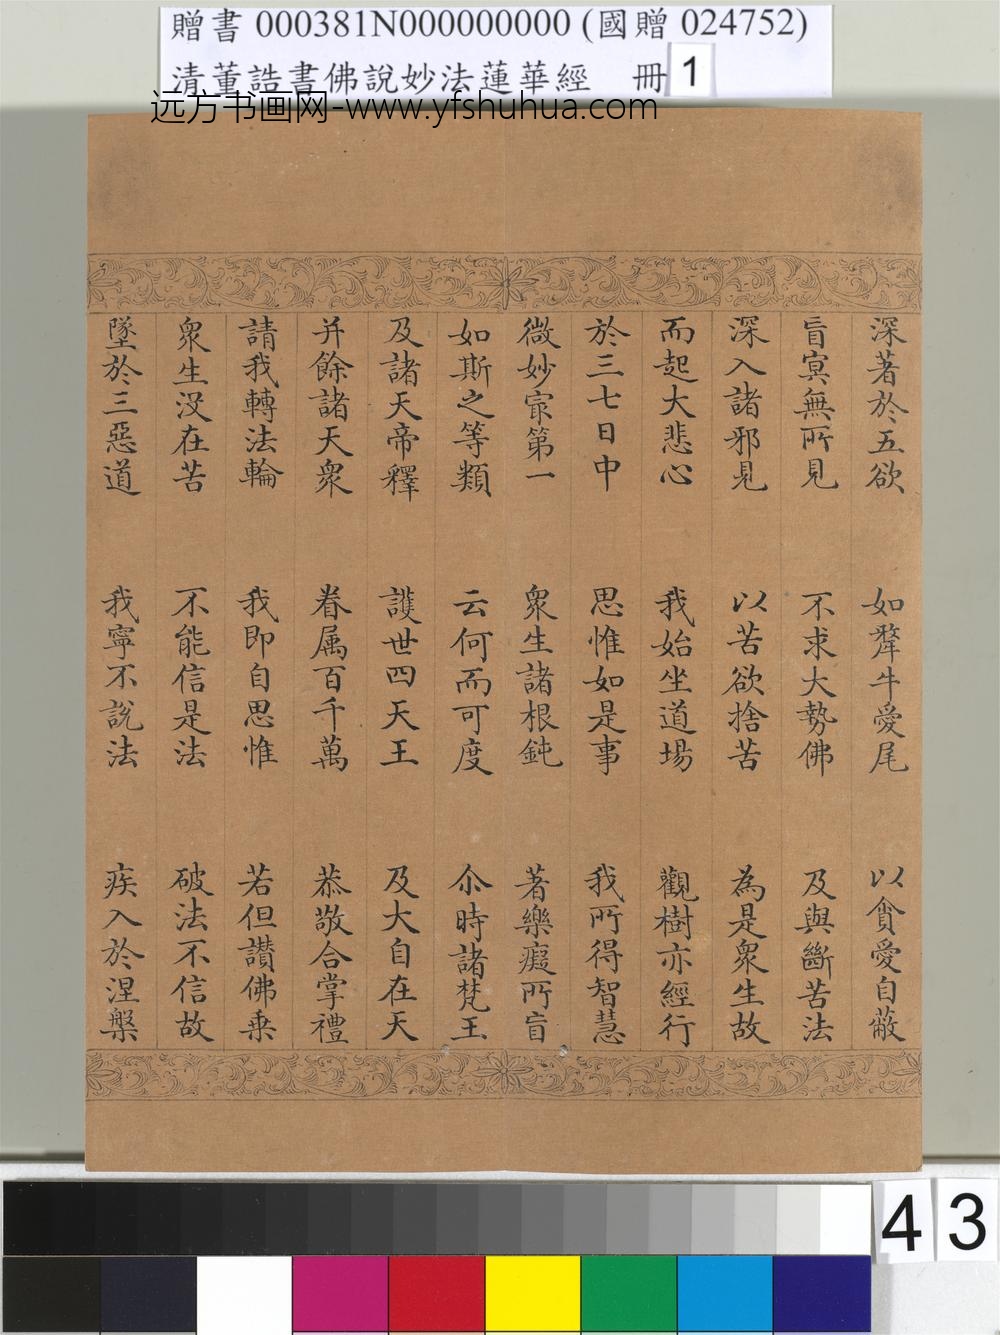 贈書 000381N000000000 (國贈 024752)
清董誥書佛說妙法蓮華經 冊 1
远方书画网-www.yfshuhua.com
深著於五欲 如犛牛愛尾 以貪愛自蔽
盲冥無所見 不求大勢佛 及與斷苦法
深入諸邪見 以苦欲捨苦 為是眾生故
而起大悲心 我始坐道場 觀樹亦經行
於三七日中 思惟如是事 我所得智慧
微妙㝡第一 眾生諸根鈍 著樂癡所盲
如斯之等類 云何而可度 尒時諸梵王
及諸天帝釋 護世四天王 及大自在天
并餘諸天眾 眷属百千萬 恭敬合掌禮
請我轉法輪 我即自思惟 若但讃佛乗
眾生沒在苦 不能信是法 破法不信故
墜於三惡道 我寧不說法 疾入於涅槃
43